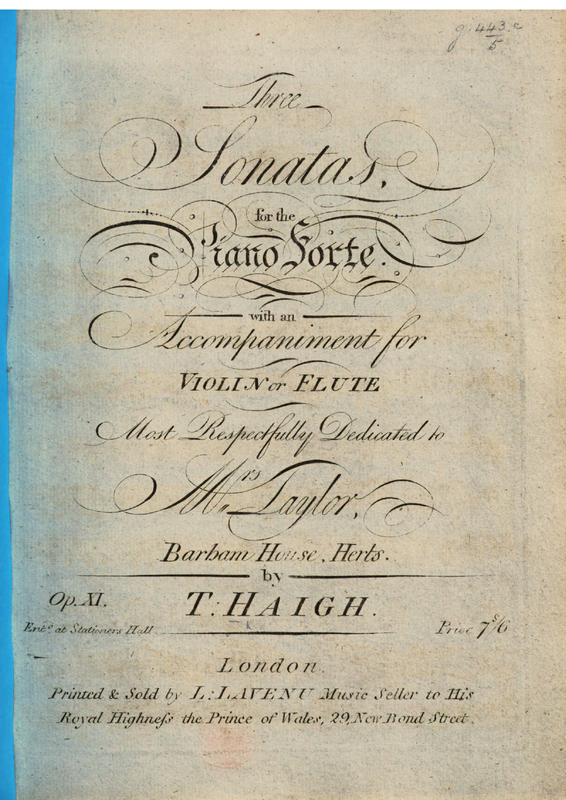 g. 443.c
5
Three
Sonatas,
for the
Piano Forte.
with an
Accompaniment for
VIOLIN or FLUTE
Most Respectfully Dedicated to
Mrs. Taylor,
Barham House, Herts.
by
Op. XI.
T: HAIGH.
Entd. at Stationers Hall
Price 7s/6
London.
Printed & Sold by L: LAVENU Music Seller to His
Royal Highneſs the Prince of Wales, 29, New Bond Street.